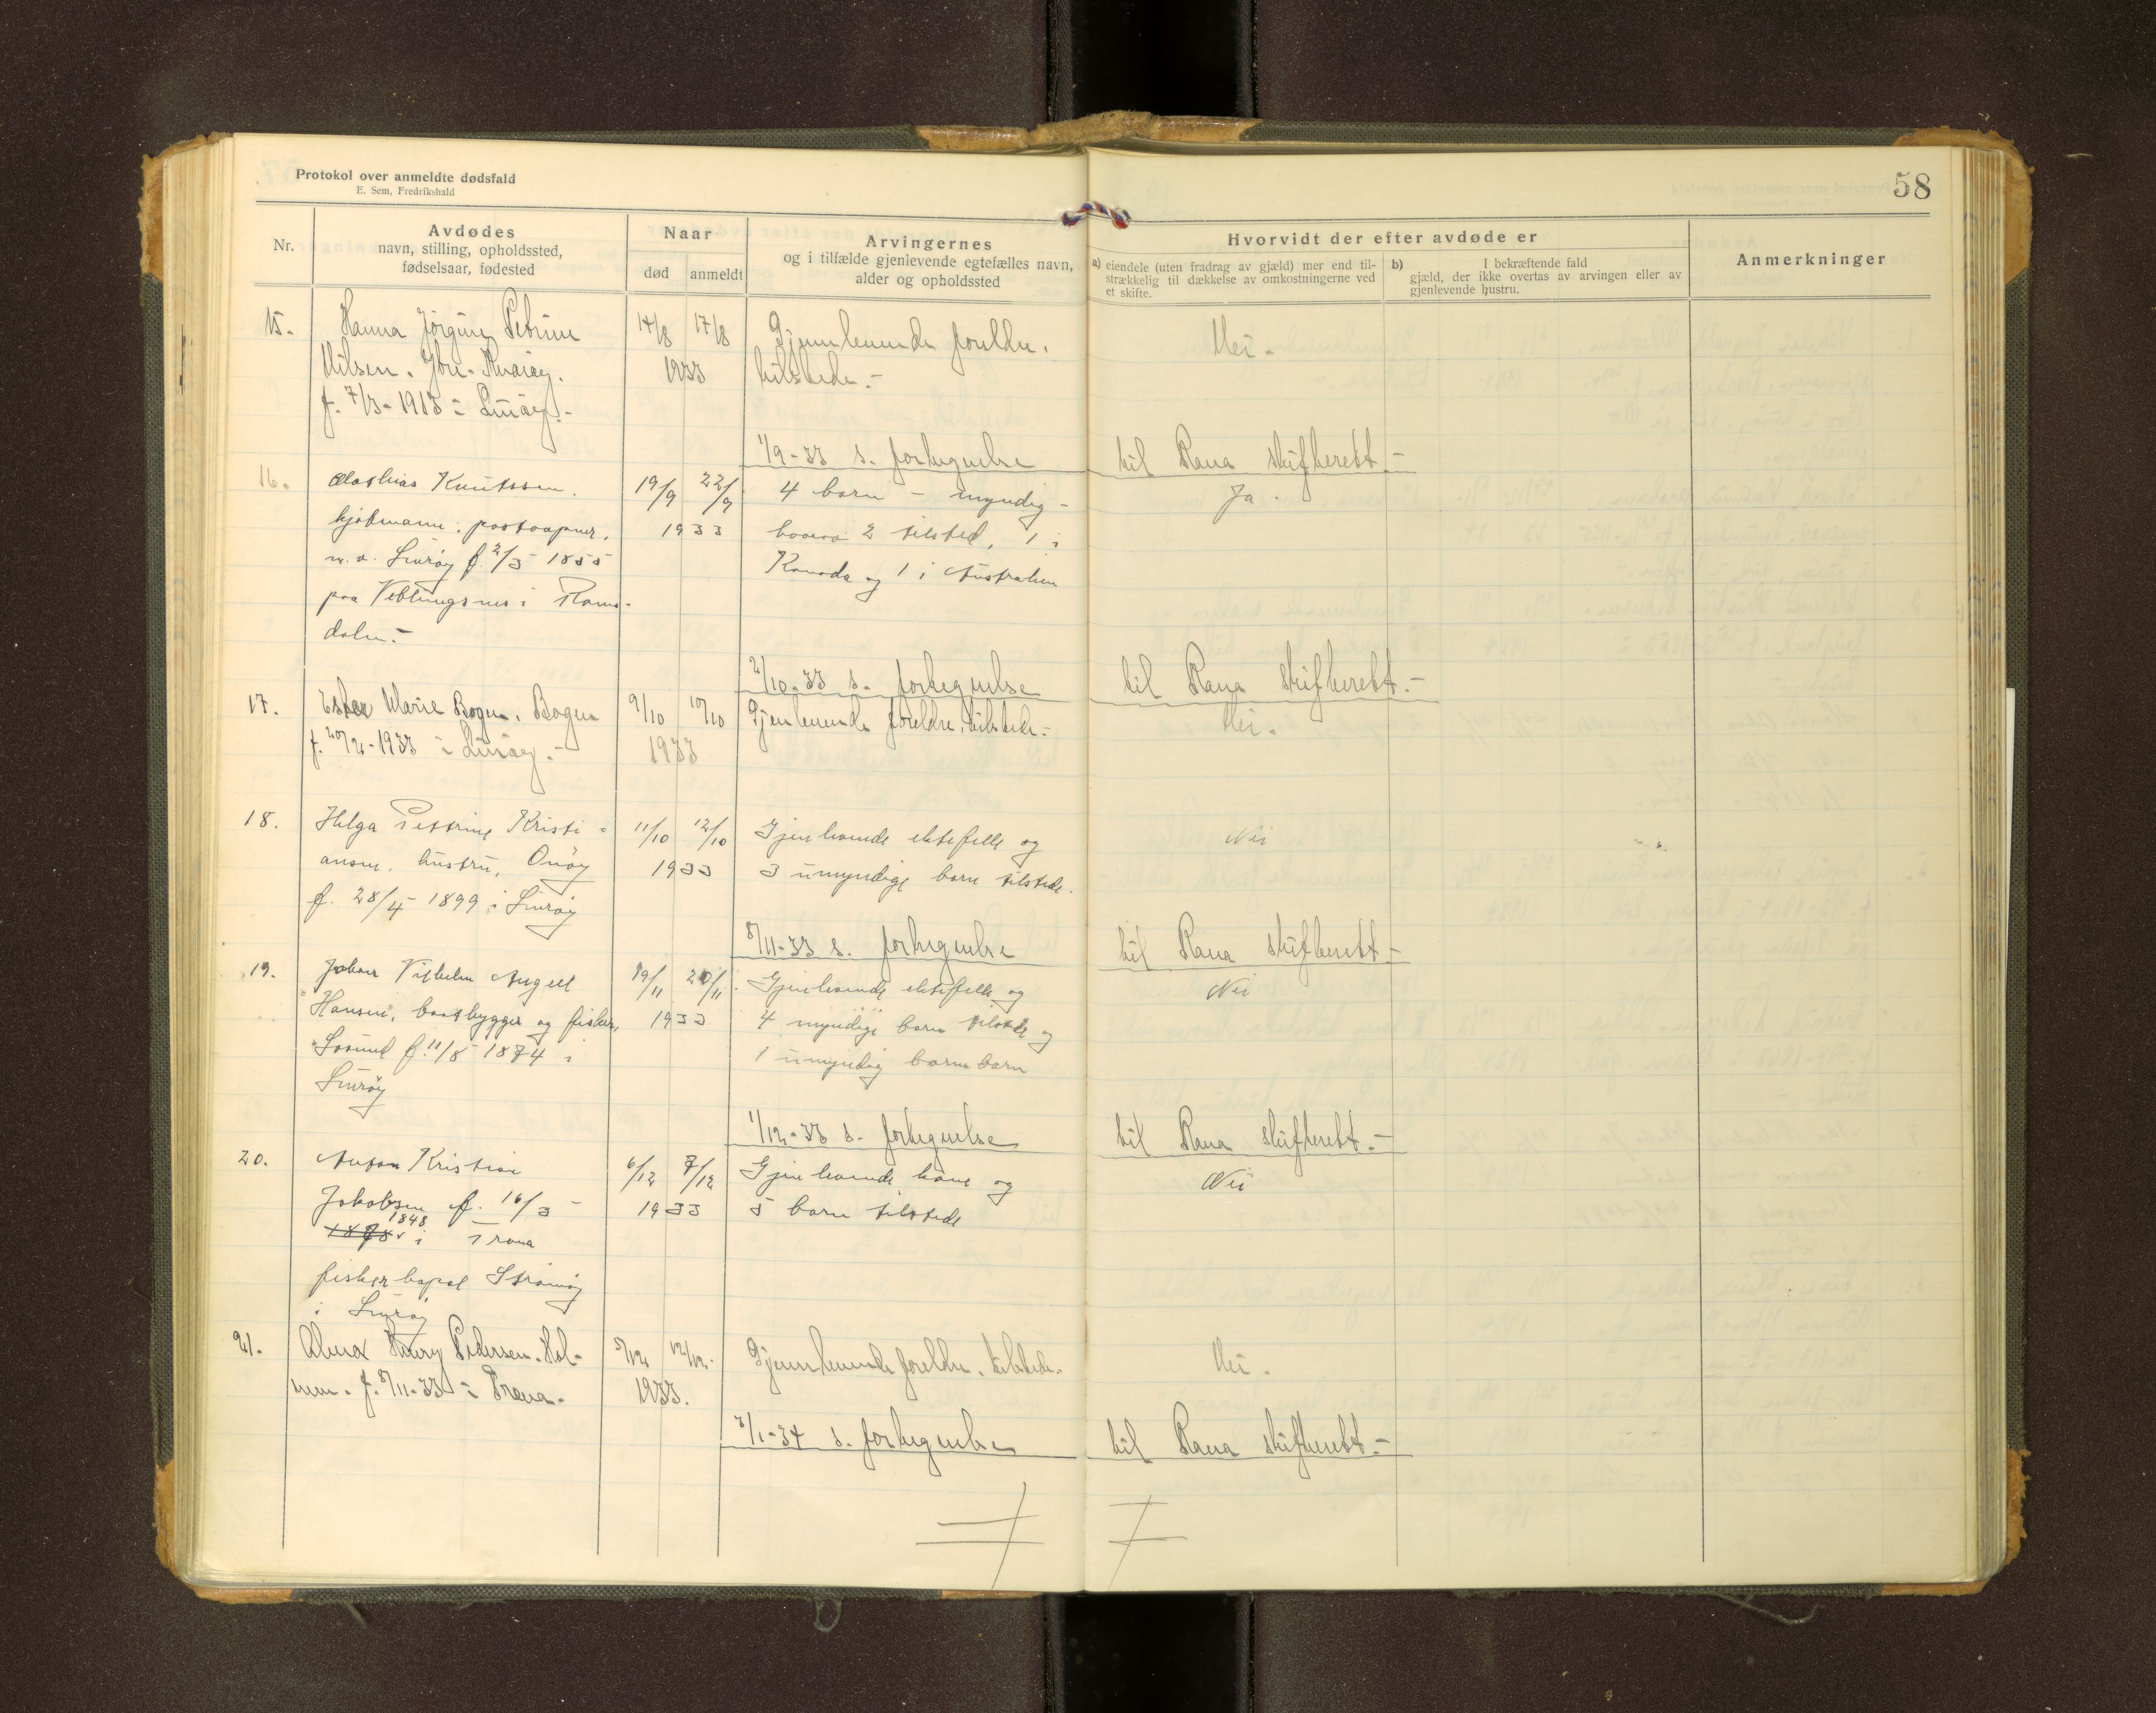 Protokol over anmeldte dødsfald
E. Sem, Fredrikshald
58
Nr.
Avdødes
navn, stilling, opholdssted,
fødselsaar, fødested
Naar
død anmeldt
Arvingernes
og i tilfælde gjenlevende egtefælles navn,
alder og opholdssted
Hvorvidt der efter avdøde er
a) eiendele (uten fradrag av gjæld) mer end til-
strækkelig til dækkelse av omkostningerne ved
et skifte.
b) I bekræftende fald
gjæld, der ikke overtas av arvingen eller av
gjenlevende hustru.
Anmerkninger
15. Hanna Jörgine Petrine 14/8 17/8 Gjennlevende foreldre, Nei.
Nilsen. 1933 tilstede.-
f. 7/3-1913 i Luröy.-
1/9-33 s. fortegnelse til Rana skifterett.-
16. Mathias Knutssen. 19/9 22/9 4 barn - myndig - Ja.
kjøbmann, postaapner, 1933 hvorav 2 tilsted, 1 i
m.v. Lurøy f. 2/5 1855 Kanada og 1 i Australien
paa Veblungsnes i Roms-
dalen.-
2/10-33 s. fortegnelse til Rana skifterett.-
17. Ester Marie Bogen. Bogen 9/10 10/10 Gjenlevende foreldre, tilstede.- Nei.
f. 20/2-1933 i Luröy.- 1933
18. Helga Pettrine Kristi- 11/10 12/10 Gjenlevende ektefelle og Nei
ansen, hustru, Onøy 1933 3 umyndige barn tilstede.
f. 28/4 1899 i Lurøy
8/11-33 s. fortegnelse til Rana skifterett.-
19. Johan Vilhelm August 19/11 20/11 Gjenlevende ektefelle og Nei
Hansen, baatbygger og fisker, 1933 4 myndige barn tilstede og
Lovund f. 11/8 1874 i 1 umyndig barnebarn
Lurøy
1/12-33 s. fortegnelse til Rana skifterett.-
20. Anton Kristian 6/12 7/12 Gjenlevende kone og Nei
Jakobsen f. 16/3 - 1933 5 barn tilstede
1878 1848 i Træna
fisker bopæl Strømøy
i Lurøy
21. Alma Henry Pedersen. Hol- 5/12 12/12. Gjennlevende foreldre, tilstede. Nei.
men. f. 8/11-33 i Træna. 1933.
3/1-34 s. fortegnelse til Rana skifterett.-